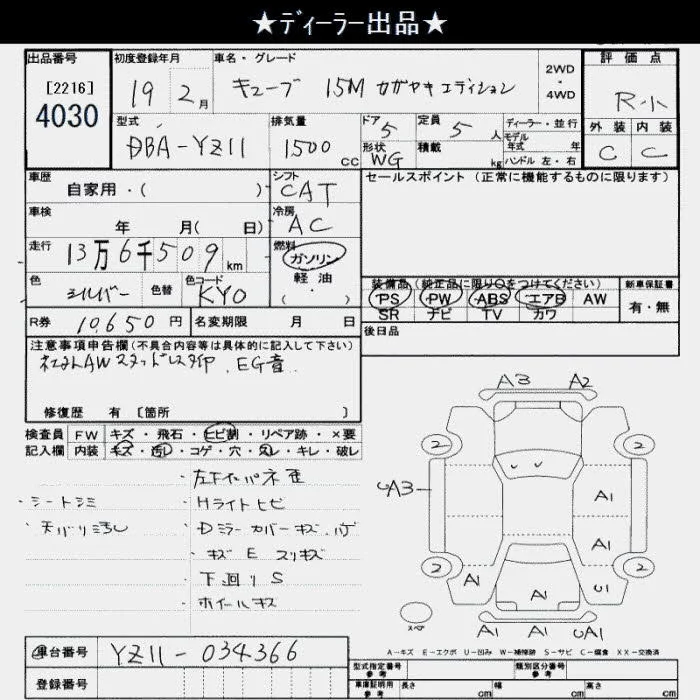 ★ディーラー出品★
出品番号
[2216]
4030
初度登録年月
19 2月
車名・グレード
キューブ 15M カガヤキエディション
2WD
・
4WD
評価点
R-小
外装 内装
C C
型式
DBA-YZ11
排気量
1500cc
ドア 5
形状 WG
定員 5人
積載 kg
ディーラー・並行
モデル
年式 年
ハンドル 左・右
車歴
自家用・( )
シフト
CAT
セールスポイント(正常に機能するものに限ります)
車検
年 月( 日)
冷房
AC
走行
13万6千509km
燃料
ガソリン
軽油
( ・ )
色
シルバー
色替
色コード
KY0
装備品(純正品に限り○をつけてください)
PS PW ABS エアB AW
SR ナビ TV カワ
新車保証書
有・無
R券 10,650円
名変期限 月 日
後日品
注意事項申告欄(不具合内容等は具体的に記入して下さい)
社外AWスタッドレスタイヤ . EG音
修復歴 有 [箇所 ]
検査員
記入欄
FW キズ・飛石・ヒビ割・リペア跡・×要
内装 キズ・汚レ・コゲ・穴・スレ・キレ・破レ
・シートシミ
・天バリ汚レ
・左下インパネ歪
・Hライトヒビ
・Dミラーカバーキズ.ハゲ
・キズ E スリキズ
・下廻りS
・ホイールキズ
A3 A2
2 2
UA3
A1
A1
2 2
A1 A1 U1
スペア
A1 A1 UA1
A-キズ E-エクボ U-凹み W-補修跡 S-サビ C-腐食 XX-交換済
車台番号 YZ11-034366
登録番号
型式指定番号
参考
類別区分番号
参考
車庫証明用
参考
長さ cm
幅 cm
高さ cm